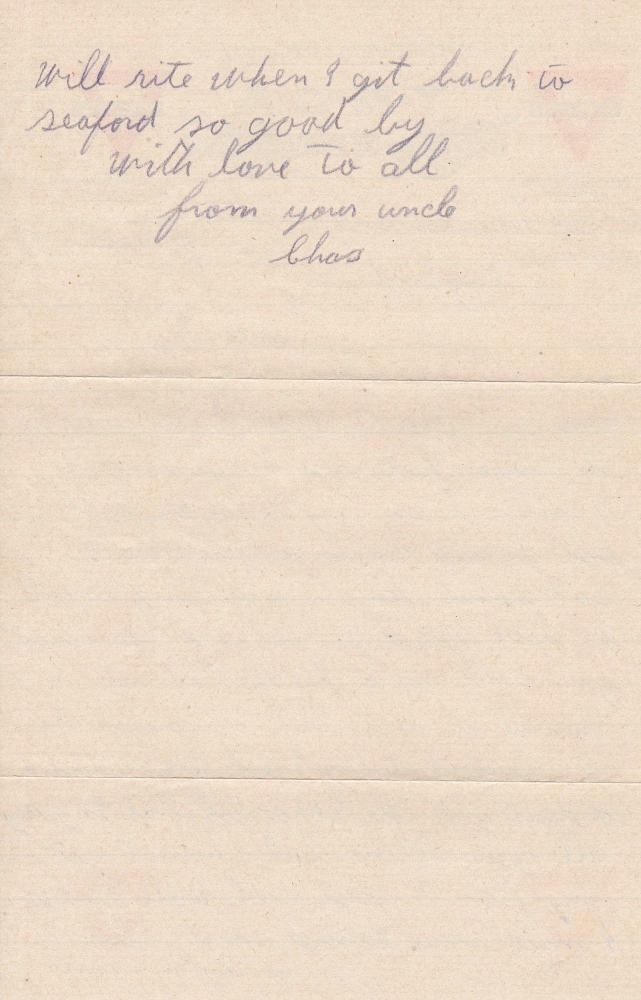 will rite when I git back to
seaford so good by
with love to all
from your uncle
Chas